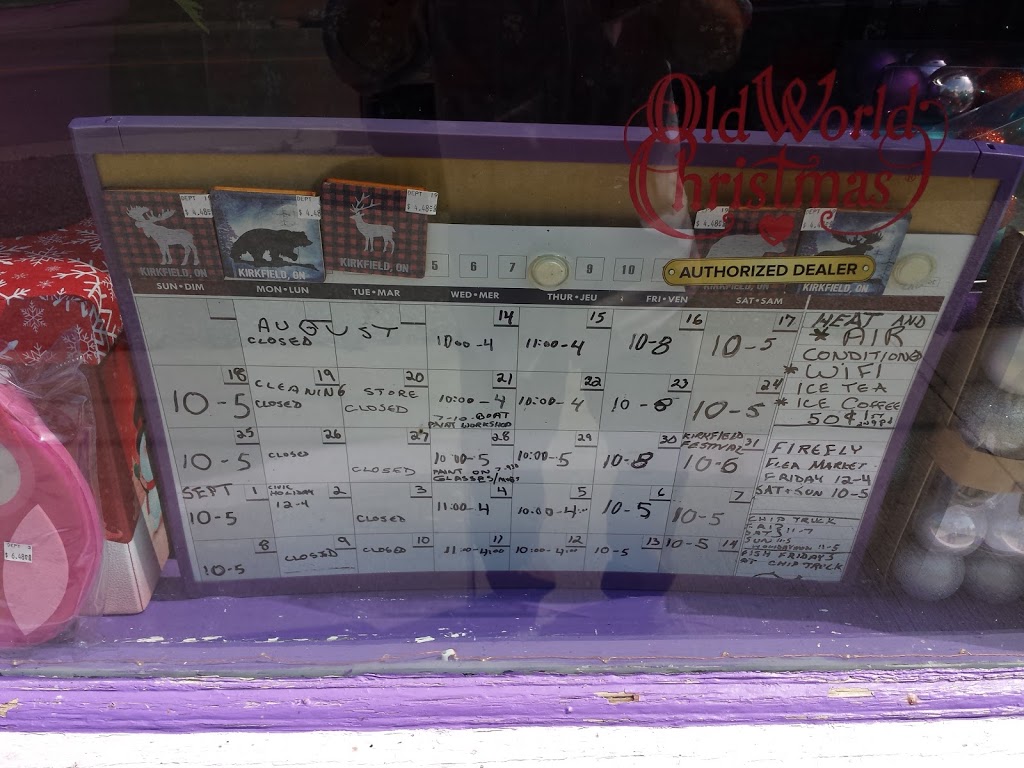 Old World
Christmas
AUTHORIZED DEALER
DEPT 19
$ 4.48
KIRKFIELD, ON
DEPT
$ 4.48
KIRKFIELD, ON
DEPT 19
$ 4.48
KIRKFIELD, ON
DEPT 19
$ 4.48
KIRKFIELD, ON
KIRKFIELD, ON
5 6 7 9 10
SUN•DIM MON•LUN TUE•MAR WED•MER THUR•JEU FRI•VEN SAT•SAM
AUGUST 14 15 16 17
CLOSED 10:00-4 11:00-4 10-8 10-5
18 19 20 21 22 23 24
CLEANING STORE
10-5 CLOSED CLOSED 10:00-4 10:00-4 10-8 10-5
7-10 BOAT
PAINT WORKSHOP
25 26 27 28 29 30 31
KIRKFIELD
FESTIVAL
10-5 CLOSED CLOSED 10:00-5 10:00-5 10-8 10-6
PAINT ON
GLASSES
SEPT 1 2 3 4 5 6 7
CIVIC
HOLIDAY
10-5 12-4 CLOSED 11:00-4 10:00-4 10-5 10-5
8 9 10 11 12 13 14
10-5 CLOSED CLOSED 11:00-4:00 10:00-4:00 10-5 10-5
HEAT AND
* AIR
CONDITIONED
* WIFI
ICE TEA
* ICE COFFEE
50¢
FIREFLY
FLEA MARKET
FRIDAY 12-4
SAT+SUN 10-5
CHIP TRUCK
FRI 11-7
SUN 11-5
11-5
FISH FRIDAYS
AT CHIP TRUCK
$ 6.48